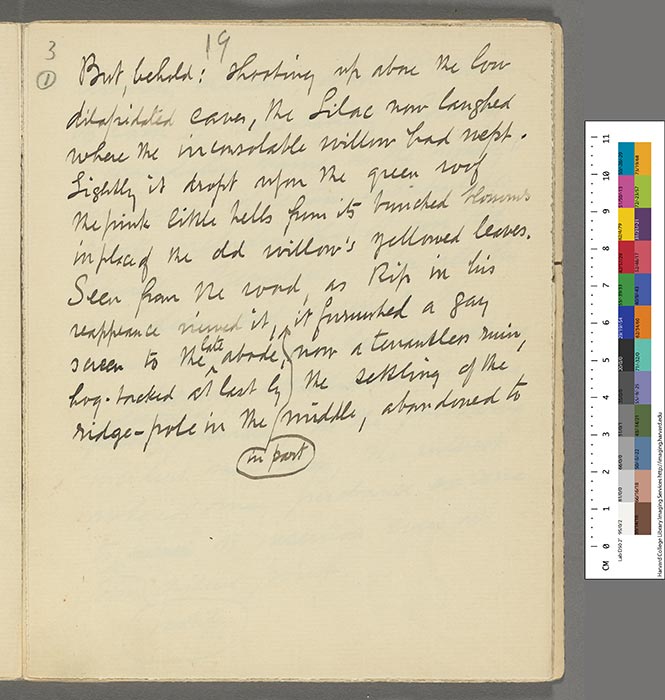 19
3
1
But, behold: shooting up above the low
dilapidated eaves, the Lilac now laughed
where the inconsolable willow had wept.
Lightly it dropt upon the green roof
the pink little bells from its bunched blossoms
in place of the old willow's yellowed leaves.
Seen from the wood, as Rip in his
reappeance viewed it, it furnished a gay
screen to the late abode, now a tenantless ruin,
hog-backed at last by the settling of the
ridge-pole in the middle, abandoned to
in part
CM 0 1 2 3 4 5 6 7 8 9 10 11
Harvard College Library Imaging Services http://imaging.harvard.edu